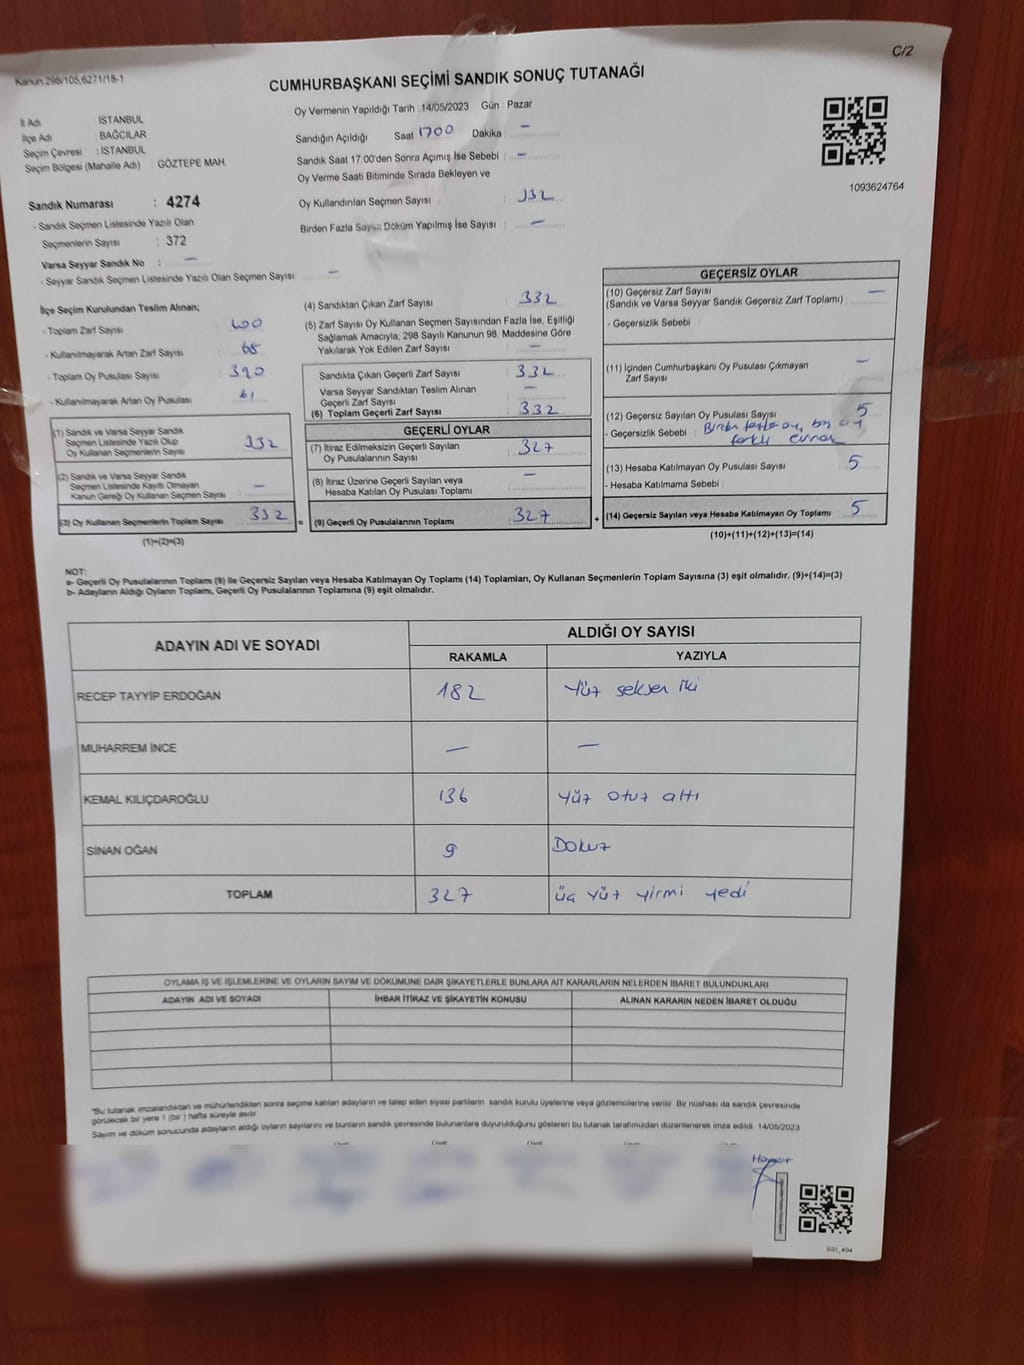 C/2
Kanun.298/105,6271/18-1
CUMHURBAŞKANI SEÇİMİ SANDIK SONUÇ TUTANAĞI
İl Adı İSTANBUL
İlçe Adı BAĞCILAR
Seçim Çevresi : İSTANBUL
Seçim Bölgesi (Mahalle Adı) : GÖZTEPE MAH.
Sandık Numarası : 4274
- Sandık Seçmen Listesinde Yazılı Olan
Seçmenlerin Sayısı : 372
Varsa Seyyar Sandık No : —
- Seyyar Sandık Seçmen Listesinde Yazılı Olan Seçmen Sayısı: —
Oy Vermenin Yapıldığı Tarih : 14/05/2023 Gün : Pazar
Sandığın Açıldığı Saat 1700 Dakika : —
Sandık Saat 17:00'den Sonra Açımış İse Sebebi : —
Oy Verme Saati Bitiminde Sırada Bekleyen ve
Oy Kullandırılan Seçmen Sayısı : 332
Birden Fazla Sayım Döküm Yapılmış İse Sayısı : —
1093624764
İlçe Seçim Kurulundan Teslim Alınan;
- Toplam Zarf Sayısı : 400
- Kullanılmayarak Artan Zarf Sayısı : 68
- Toplam Oy Pusulası Sayısı : 390
- Kullanılmayarak Artan Oy Pusulası : 61
(1) Sandık ve Varsa Seyyar Sandık
Seçmen Listesinde Yazılı Olup
Oy Kullanan Seçmenlerin Sayısı : 332
(2) Sandık ve Varsa Seyyar Sandık
Seçmen Listesinde Kayıtlı Olmayan
Kanun Gereği Oy Kullanan Seçmen Sayısı : —
(3) Oy Kullanan Seçmenlerin Toplam Sayısı : 332 =
(1)+(2)=(3)
(4) Sandıktan Çıkan Zarf Sayısı : 332
(5) Zarf Sayısı Oy Kullanan Seçmen Sayısından Fazla İse, Eşitliği
Sağlamak Amacıyla; 298 Sayılı Kanunun 98. Maddesine Göre
Yakılarak Yok Edilen Zarf Sayısı : —
Sandıkta Çıkan Geçerli Zarf Sayısı : 332
Varsa Seyyar Sandıktan Teslim Alınan
Geçerli Zarf Sayısı : —
(6) Toplam Geçerli Zarf Sayısı : 332
GEÇERLİ OYLAR
(7) İtiraz Edilmeksizin Geçerli Sayılan
Oy Pusulalarının Sayısı : 327
(8) İtiraz Üzerine Geçerli Sayılan veya
Hesaba Katılan Oy Pusulası Toplamı : —
(9) Geçerli Oy Pusulalarının Toplamı : 327 +
GEÇERSİZ OYLAR
(10) Geçersiz Zarf Sayısı : —
(Sandık ve Varsa Seyyar Sandık Geçersiz Zarf Toplamı)
- Geçersizlik Sebebi :
(11) İçinden Cumhurbaşkanı Oy Pusulası Çıkmayan
Zarf Sayısı : —
(12) Geçersiz Sayılan Oy Pusulası Sayısı : 5
- Geçersizlik Sebebi : Birden fazla oy,
farklı evrak
(13) Hesaba Katılmayan Oy Pusulası Sayısı : 5
- Hesaba Katılmama Sebebi :
(14) Geçersiz Sayılan veya Hesaba Katılmayan Oy Toplamı : 5
(10)+(11)+(12)+(13)=(14)
NOT:
a- Geçerli Oy Pusulalarının Toplamı (9) ile Geçersiz Sayılan veya Hesaba Katılmayan Oy Toplamı (14) Toplamları, Oy Kullanan Seçmenlerin Toplam Sayısına (3) eşit olmalıdır. (9)+(14)=(3)
b- Adayların Aldığı Oyların Toplamı, Geçerli Oy Pusulalarının Toplamına (9) eşit olmalıdır.
ADAYIN ADI VE SOYADI ALDIĞI OY SAYISI
RAKAMLA YAZIYLA
RECEP TAYYİP ERDOĞAN 182 Yüz seksen iki
MUHARREM İNCE — —
KEMAL KILIÇDAROĞLU 136 Yüz otuz altı
SİNAN OĞAN 9 Dokuz
TOPLAM 327 üç yüz yirmi yedi
OYLAMA İŞ VE İŞLEMLERİNE VE OYLARIN SAYIM VE DÖKÜMÜNE DAİR ŞİKAYETLERLE BUNLARA AİT KARARLARIN NELERDEN İBARET BULUNDUKLARI
ADAYIN ADI VE SOYADI İHBAR İTİRAZ VE ŞİKAYETİN KONUSU ALINAN KARARIN NEDEN İBARET OLDUĞU
"Bu tutanak imzalandıktan ve mühürlendikten sonra seçime katılan adayların ve talep eden siyasi partilerin sandık kurulu üyelerine veya gözlemcilerine verilir. Bir nüshası da sandık çevresinde
görülecek bir yere 1 (bir ) hafta süreyle asılır.
Sayım ve döküm sonucunda adayların aldığı oyların sayılarını ve bunların sandık çevresinde bulunanlara duyurulduğunu gösteren bu tutanak tarafımızdan düzenlenerek imza edildi. 14/05/2023